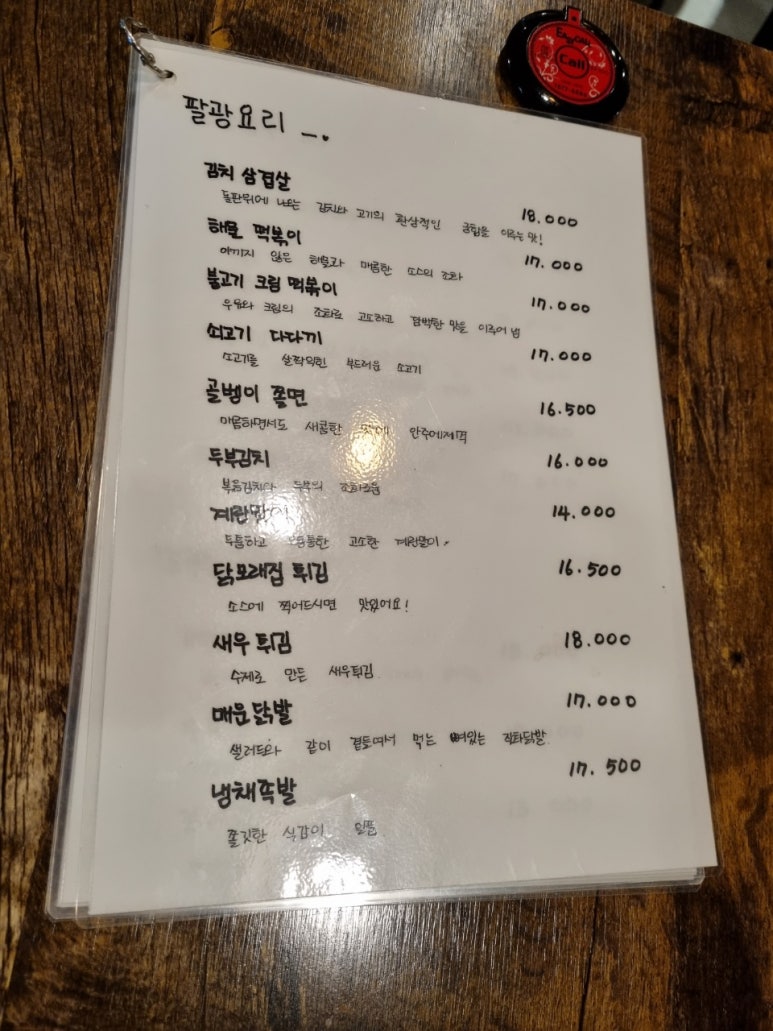 Call
팔광요리
김치 삼겹살
18.000
돌판위에 나오는 김치와 고기의 환상적인 궁합을 이루는 맛!
해물 떡볶이
17.000
아끼지 않은 해물과 매콤한 소스의 조화
불고기 크림 떡볶이
17.000
우유와 크림의 조화로 고소하고 담백한 맛을 이루어 냄
쇠고기 다다끼
17.000
소고기를 살짝익힌 부드러운 소고기
골벵이 쫄면
16.500
매콤하면서도 새콤한 맛에 안주에제격
두부김치
16.000
볶음김치와 두부의 조화로움
계란말이
14.000
두툼하고 고소한 계란말이.
닭모래집 튀김
16.500
소스에 찍어드시면 맛있어요!
새우 튀김
18.000
수제로 만든 새우튀김
매운 닭발
17.000
샐러드와 같이 곁들여서 먹는 뼈있는 직화닭발
냉채족발
17.500
쫄깃한 식감이 일품